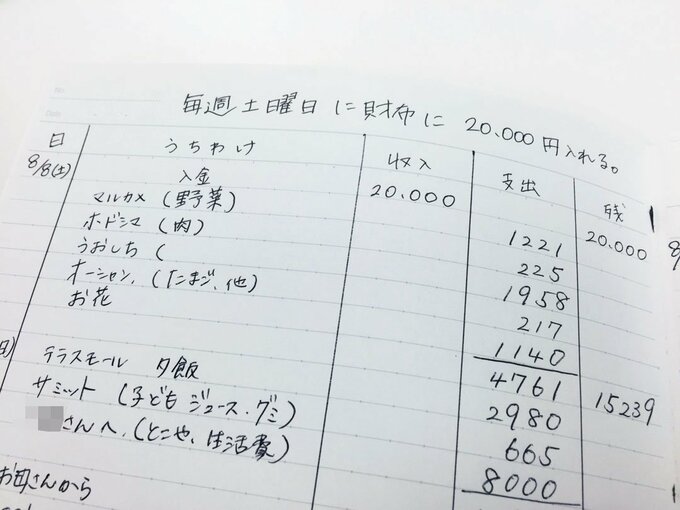 No.
Date
毎週土曜日に財布に 20.000円入れる。
日 うちわけ 収入 支出 残
8/8(土) 入金 20.000 20.000
マルカメ (野菜) 1221
ホドシマ (肉) 225
うおしち ( 1958
オーシャン. (たまご、他) 217
お花 1140
4761 15239
日) テラスモール 夕飯 2980
サミット (子ども ジュース・グミ) 665
さんへ. (とこや、生活費) 8000
お母さんから
8/